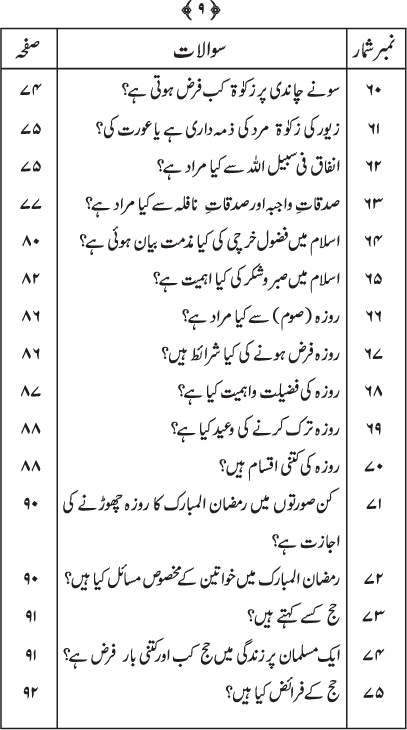 ﴿۹﴾
نمبر شمار سوالات صفحہ
۶۰ سونے چاندی پر زکوٰۃ کب فرض ہوتی ہے؟ ۷۴
۶۱ زیور کی زکوٰۃ مرد کی ذمہ داری ہے یا عورت کی؟ ۷۵
۶۲ انفاق فی سبیل اللہ سے کیا مراد ہے؟ ۷۵
۶۳ صدقاتِ واجبہ اور صدقاتِ نافلہ سے کیا مراد ہے؟ ۷۷
۶۴ اسلام میں فضول خرچی کی کیا مذمت بیان ہوئی ہے؟ ۸۰
۶۵ اسلام میں صبر و شکر کی کیا اہمیت ہے؟ ۸۲
۶۶ روزہ (صوم) سے کیا مراد ہے؟ ۸۶
۶۷ روزہ فرض ہونے کی کیا شرائط ہیں؟ ۸۶
۶۸ روزہ کی فضیلت و اہمیت کیا ہے؟ ۸۷
۶۹ روزہ ترک کرنے کی وعید کیا ہے؟ ۸۸
۷۰ روزہ کی کتنی اقسام ہیں؟ ۸۸
۷۱ کن صورتوں میں رمضان المبارک کا روزہ چھوڑنے کی ۹۰
اجازت ہے؟
۷۲ رمضان المبارک میں خواتین کے مخصوص مسائل کیا ہیں؟ ۹۰
۷۳ حج کسے کہتے ہیں؟ ۹۱
۷۴ ایک مسلمان پر زندگی میں حج کب اور کتنی بار فرض ہے؟ ۹۱
۷۵ حج کے فرائض کیا ہیں؟ ۹۲